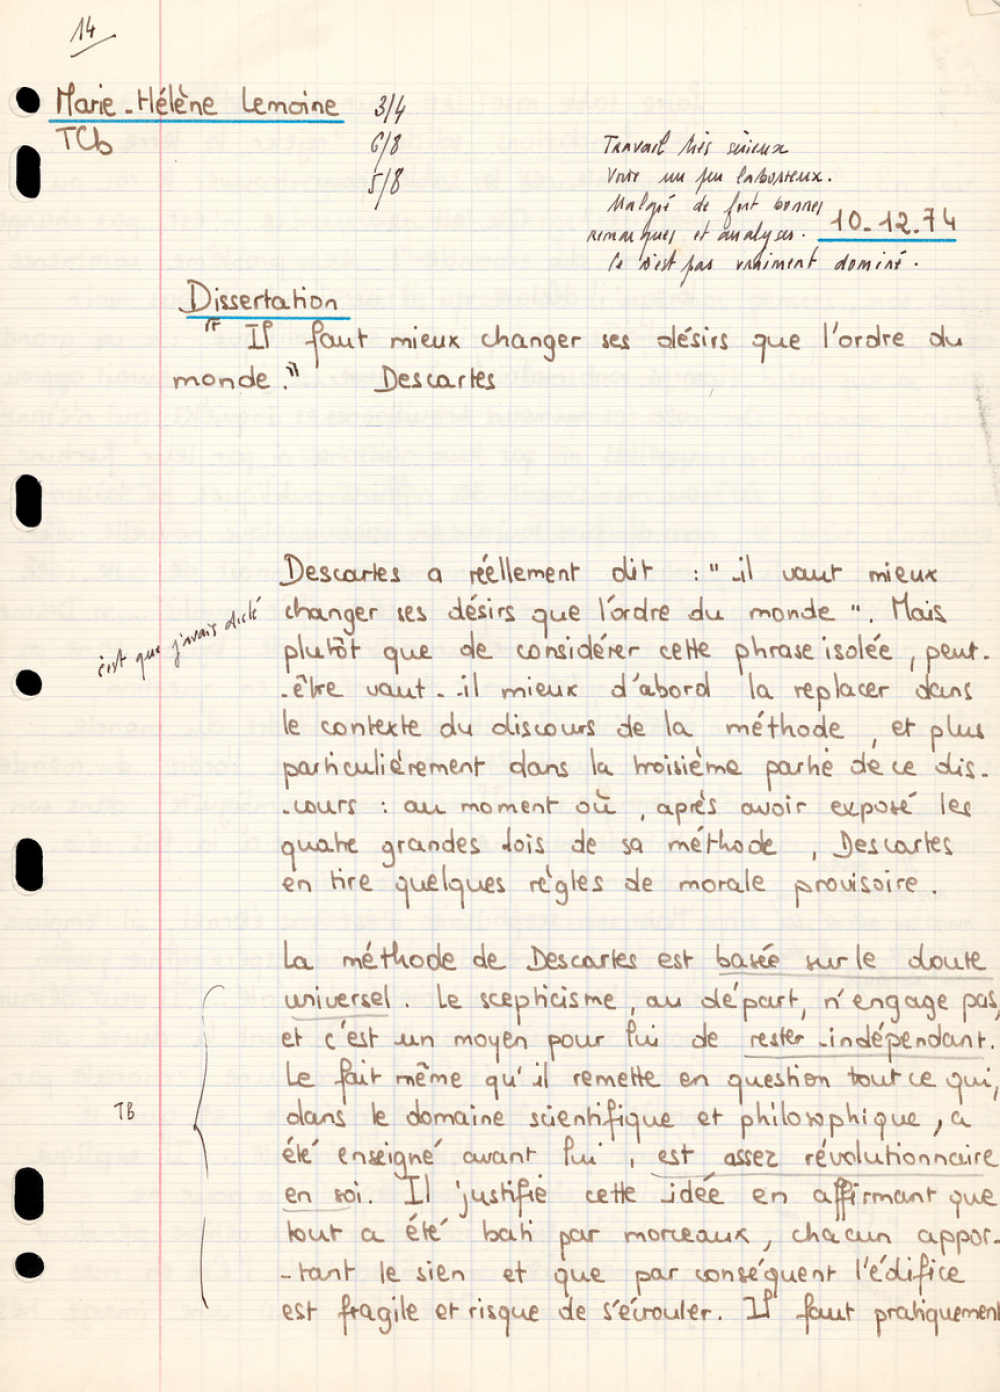 14
Marie-Hélène Lemoine
3/4
TCb
6/8
5/8
Travail très sérieux
Voire un peu laborieux.
Malgré de fort bonnes
remarques et analyses.
Ce n'est pas vraiment dominé.
10.12.74
Dissertation
"Il faut mieux changer ses désirs que l'ordre du
monde." Descartes
Descartes a réellement dit : "il vaut mieux
changer ses désirs que l'ordre du monde". Mais
c'est que j'avais dicté
plutôt que de considérer cette phrase isolée, peut-
-être vaut-il mieux d'abord la replacer dans
le contexte du discours de la méthode, et plus
particulièrement dans la troisième partie de ce dis-
-cours : au moment où, après avoir exposé les
quatre grandes lois de sa méthode, Descartes
en tire quelques règles de morale provisoire.
La méthode de Descartes est basée sur le doute
universel. Le scepticisme, au départ, n'engage pas,
et c'est un moyen pour lui de rester indépendant.
Le fait même qu'il remette en question tout ce qui,
TB
dans le domaine scientifique et philosophique, a
été enseigné avant lui, est assez révolutionnaire
en soi. Il justifie cette idée en affirmant que
tout a été bati par morceaux, chacun appor-
-tant le sien et que par conséquent l'édifice
est fragile et risque de s'écrouler. Il faut pratiquement